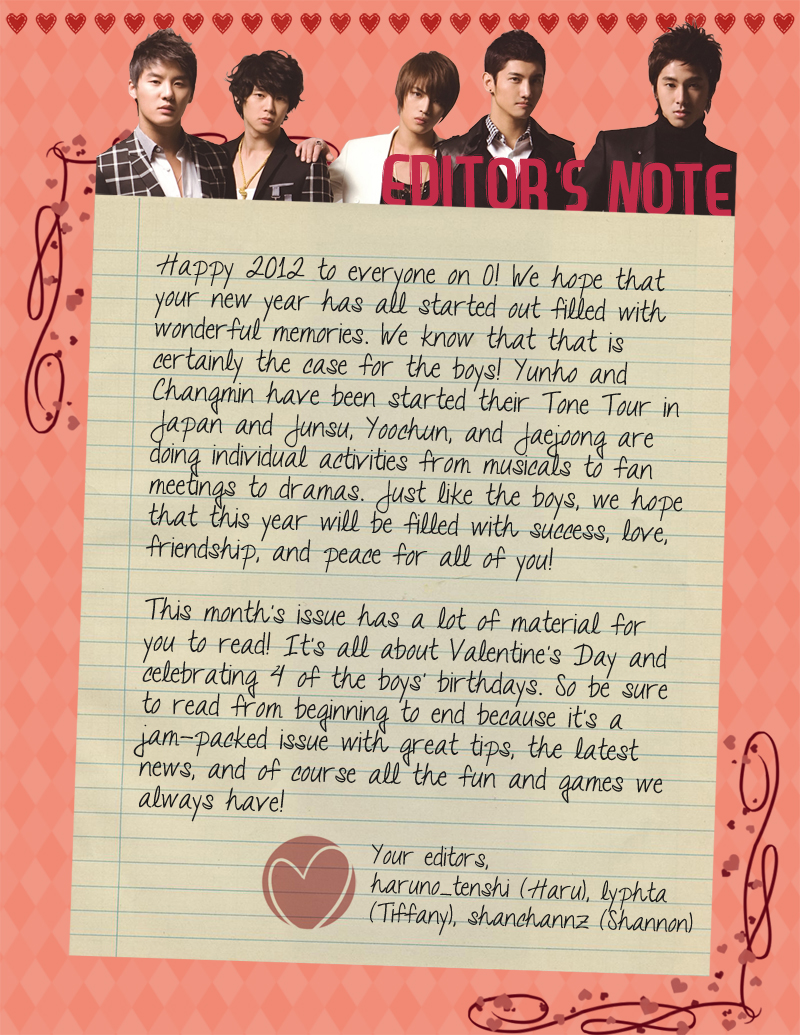 EDITOR'S NOTE
Happy 2012 to everyone on O! We hope that
your new year has all started out filled with
wonderful memories. We know that that is
certainly the case for the boys! Yunho and
Changmin have been started their Tone Tour in
Japan and Junsu, Yoochun, and Jaejoong are
doing individual activities from musicals to fan
meetings to dramas. Just like the boys, we hope
that this year will be filled with success, love,
friendship, and peace for all of you!
This month's issue has a lot of material for
you to read! It's all about Valentine's Day and
celebrating 4 of the boys' birthdays. So be sure
to read from beginning to end because it's a
jam-packed issue with great tips, the latest
news, and of course all the fun and games we
always have!
Your editors,
haruno_tenshi (Haru), lyphta
(Tiffany), shanchannz (Shannon)